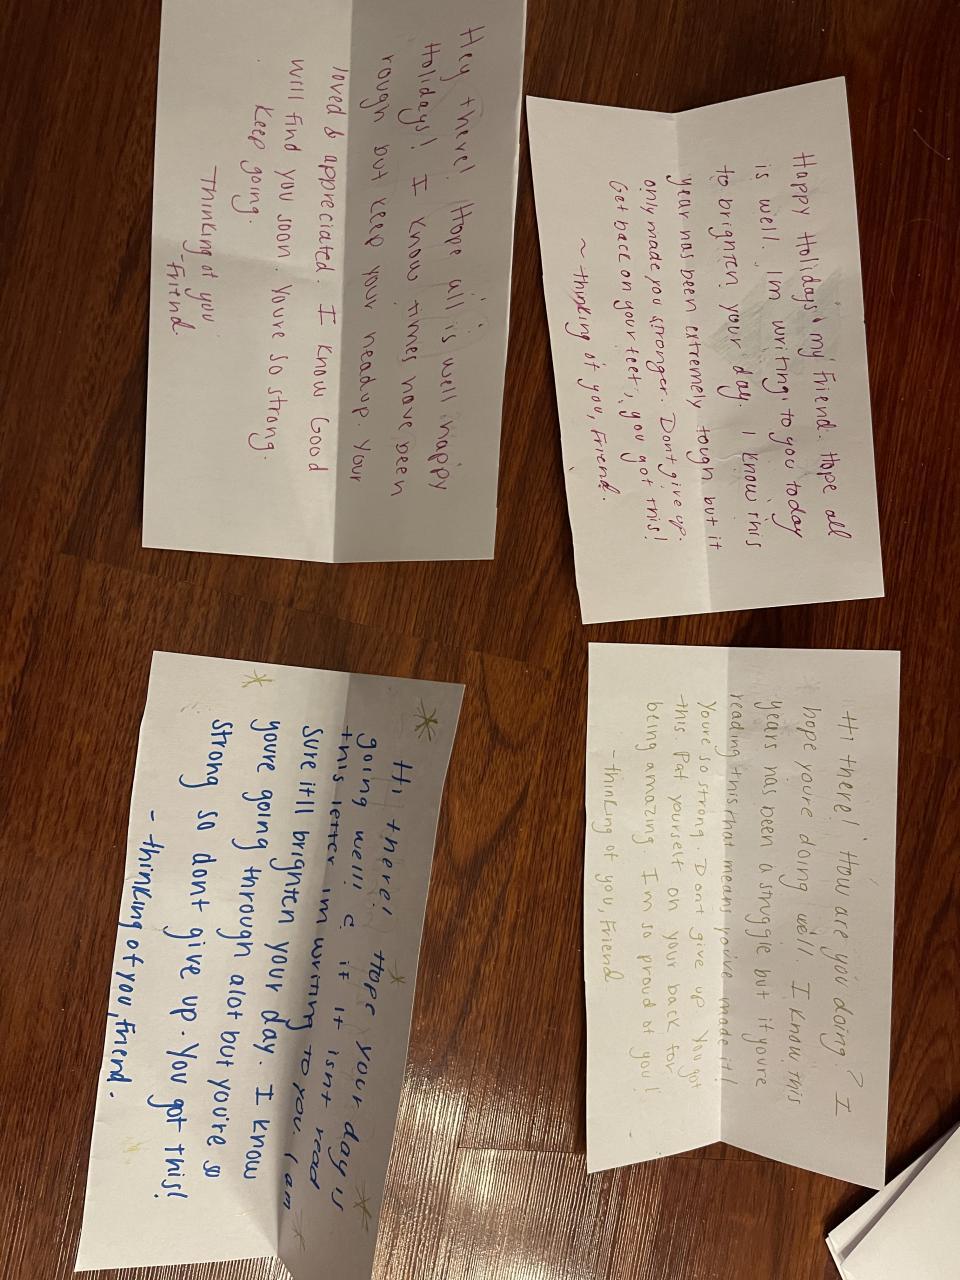 Happy Holidays my Friend. Hope all
is well. Im writing to you today
to brighten your day. I know this
year has been extremely tough but it
only made you stronger. Dont give up.
Get back on your feet, you got this!
~ thinking of you, Friend.
Hi there! How are you doing? I
hope youre doing well. I know this
years has been a struggle but if youre
reading this that means you've made it!
Youre so strong. Dont give up You got
this. Pat yourself on your back for
being amazing. Im so proud of you!
- thinking of you, Friend
Hey there! Hope all is well happy
Holidays! I know times have been
rough but keep your head up. Your
loved & appreciated. I know Good
will find you soon. Youre so strong.
Keep going.
Thinking of you
-Friend.
Hi there! Hope your day is
going well! & if it isnt read
this letter im writing to you. I am
sure it'll brighten your day. I know
youre going through alot but you're so
strong so dont give up. You got this!
- thinking of you, Friend.